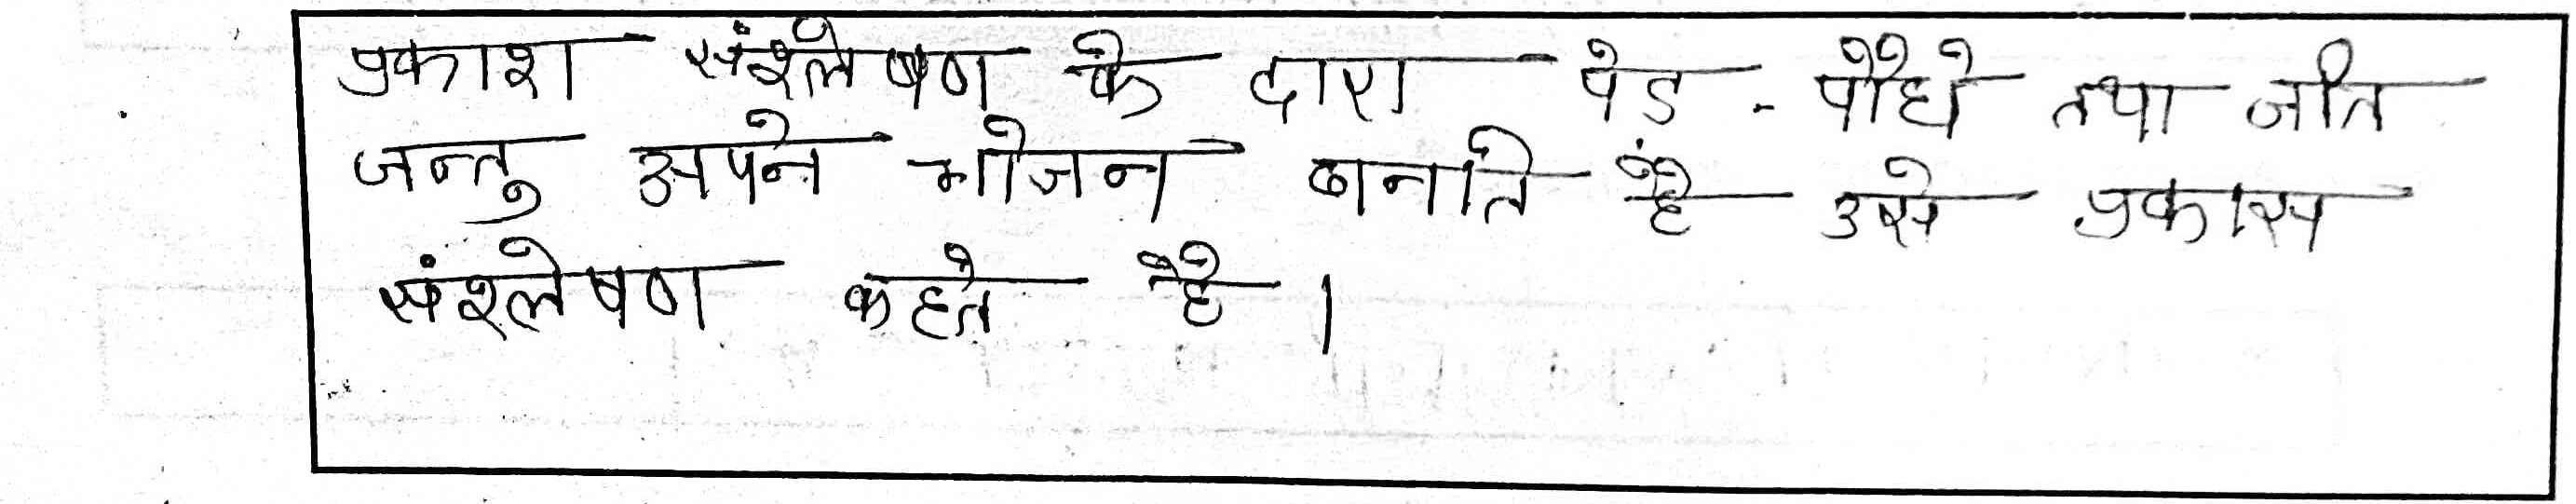 प्रकाश संश्लेषण के दारा पेड - पौधे तथा जीत
जन्तु अपने भोजन बनाते हैं उसे प्रकास
संश्लेषण कहते है।